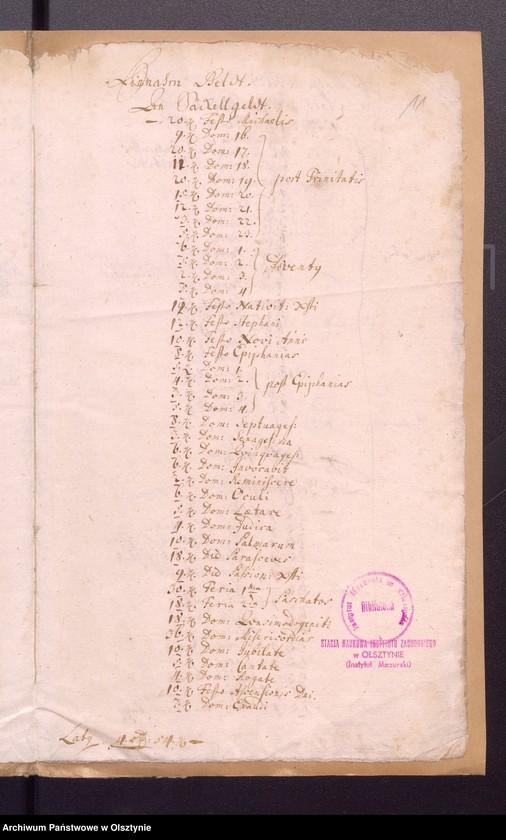 11
Einnahm Geldt.
Säckellgeldt.
20. Festo Michaelis
9. Dom: 16.
20. Dom: 17.
11. Dom: 18.
20. Dom: 19. post Trinitatis
Dom: 20.
12. Dom: 21.
Dom: 22.
Dom: 23.
6. Dom: 1.
Dom: 2. Adventy
Dom: 3.
Dom: 4
Festo Nativit: Xsti
Festo Stephani
10. Festo Novi Anni
8. Festo Epiphanias
Dom: 1.
4. Dom: 2. post Epiphanias
Dom: 3.
Dom: 4.
8. Dom: Septuages:
Dom: Sexagesima
6. Dom: Quinquages:
6. Dom: Invocabit
Dom: Reminiscere
6. Dom: Oculi
Dom: Lætare
9. Dom: Judica
10. Dom: Palmarum
18. Die Parasceves
9. Die Passion: Xsti
30. Feria 1ma
18. Feria 2da Paschatos
18. Dom: Quasimodogenit:
36. Dom: Misericordias
10. Dom: Jubilate
Dom: Cantate
4. Dom: Rogate
10. Festo Ascensionis Dni.
Dom: Exaudi
Laty 4 54
Biblioteka
STACJA NAUKOWA INSTYTUTU ZACHODNIEGO
w OLSZTYNIE
(Instytut Mazurski)
Archiwum Państwowe w Olsztynie